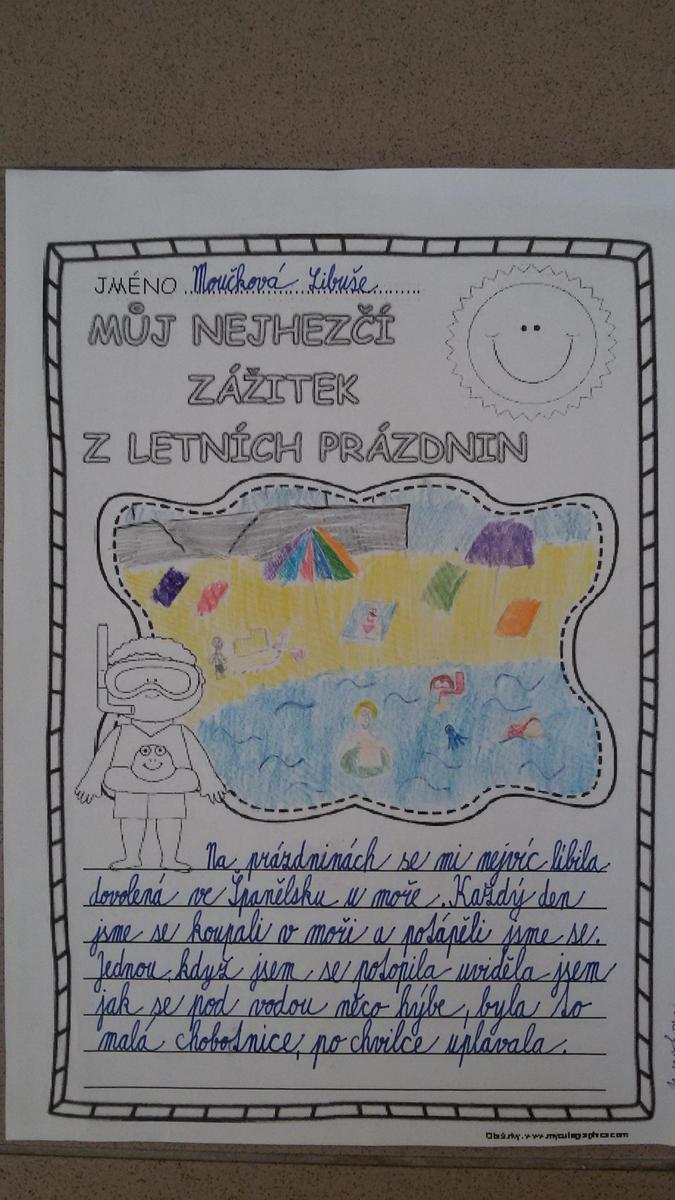 JMÉNO Moučková Libuše
MŮJ NEJHEZČÍ
ZÁŽITEK
Z LETNÍCH PRÁZDNIN
Na prázdninách se mi nejvíc líbila
dovolená ve Španělsku u moře. Každý den
jsme se koupali v moři a potápěli jsme se.
Jednou, když jsem se potopila uviděla jsem
jak se pod vodou něco hýbe, byla to
malá chobotnice, po chvilce úplavala.
Obrázky: www.mycutegraphics.com